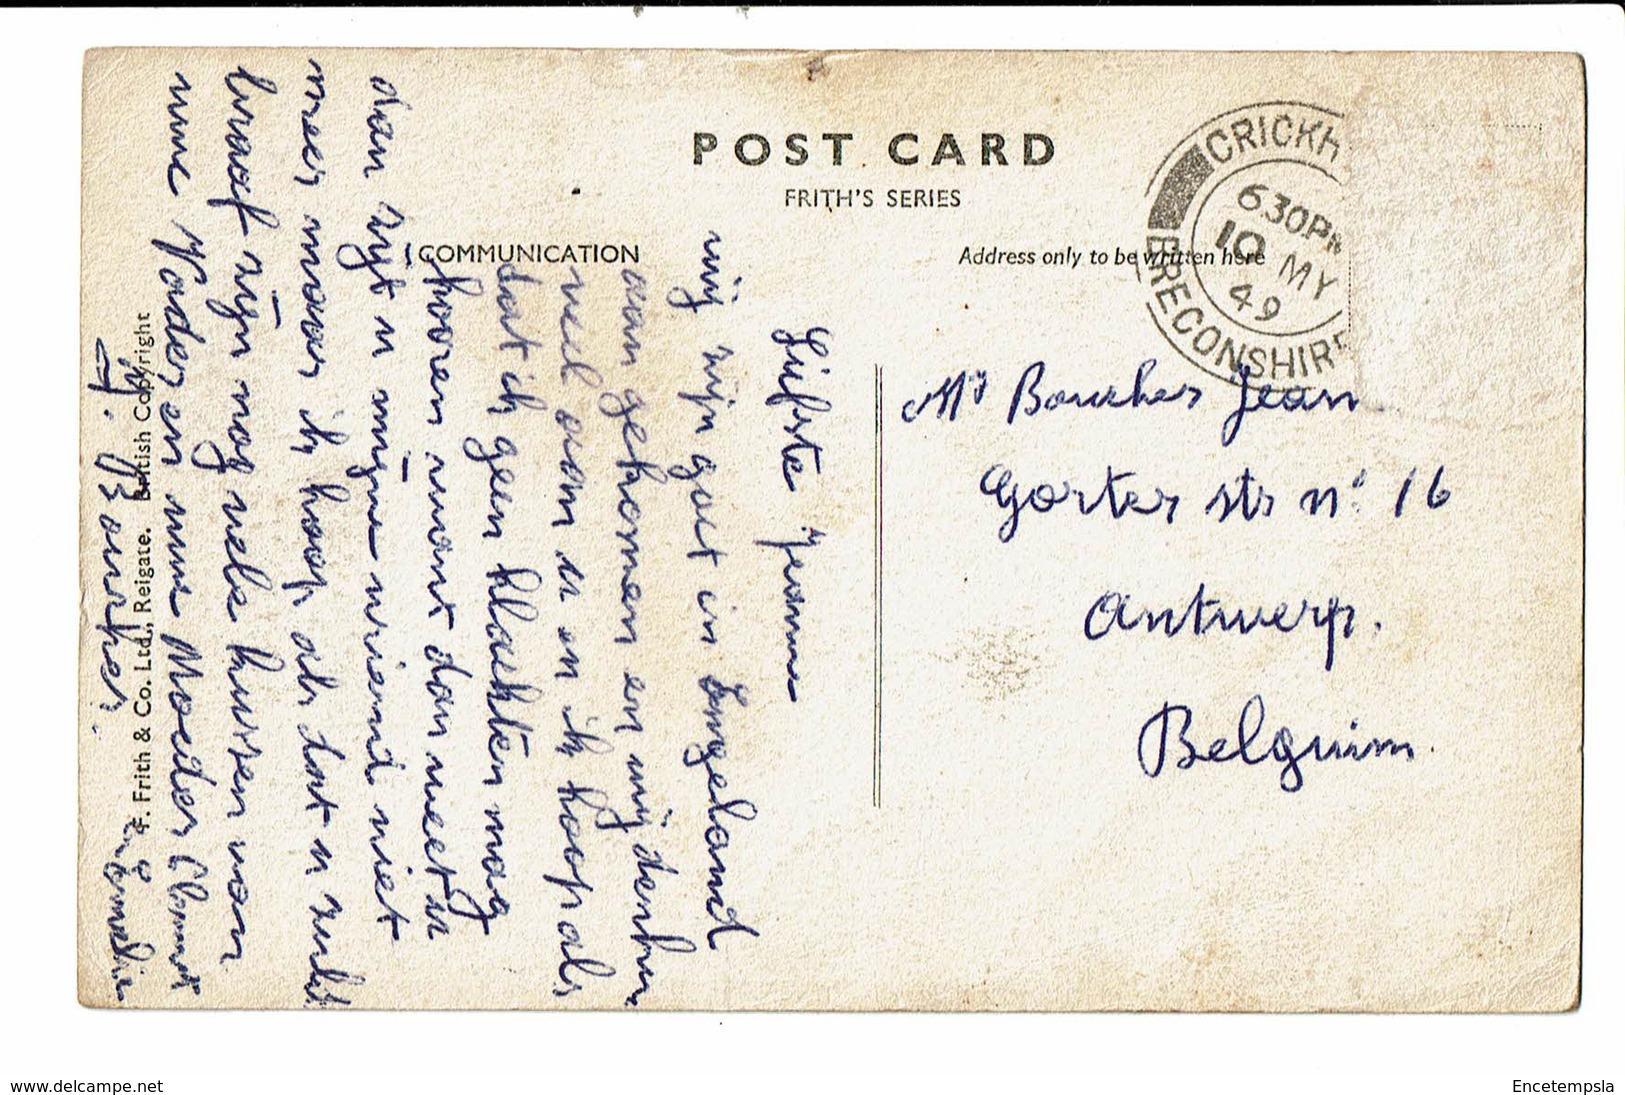 POST CARD
FRITH'S SERIES
COMMUNICATION
Address only to be written here
CRICKH
6 30PM
10 MY
49
BRECONSHIRE
Mr Bourker Jean
Gorter str n° 16
Antwerp.
Belguim.
Liefste Jeanne
wij zijn goet in Engeland
aan gekomen en wij denken
veel aan u en ik hoop als
dat ik geen klachten mag
hooren want dan weet u
dan zijt u mijne vriend niet
meer maar ik hoop als dat u zult
braaf zijn nog vele kussen van
uwe Vader en uwe Moeder
H. Bourker.
F. Frith & Co. Ltd., Reigate. British Copyright
www.delcampe.net
Encetempsla